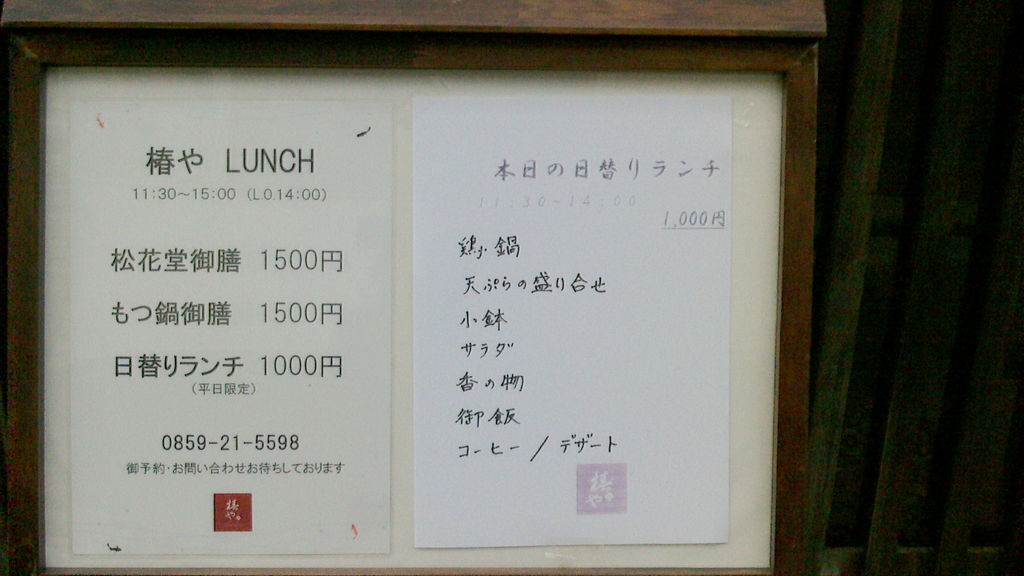 椿や LUNCH
11:30～15:00 (L.O.14:00)
松花堂御膳 1500円
もつ鍋御膳 1500円
日替りランチ 1000円
(平日限定)
0859-21-5598
御予約・お問い合わせお待ちしております
椿や
本日の日替りランチ
11:30～14:00
1,000円
鶏小鍋
天ぷらの盛り合せ
小鉢
サラダ
香の物
御飯
コーヒー / デザート
椿や